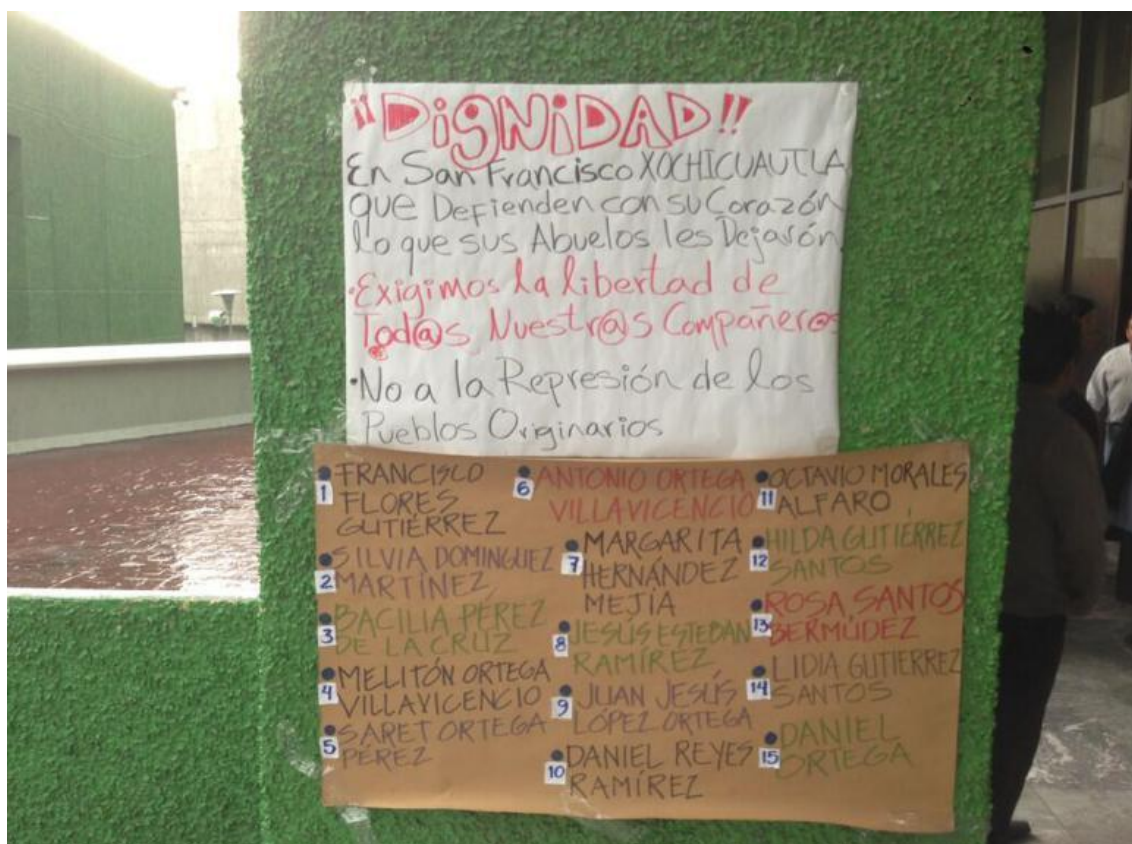 ¡¡DiGNiDAD!!
En San Francisco XOCHICUAUTLA
que Defienden con su Corazón
lo que sus Abuelos les Dejarón
·Exigimos la libertad de
Tod@s Nuestr@s Compañer@s
·No a la Represión de los
Pueblos Originarios
1 FRANCISCO
FLORES
GUTIÉRREZ
2 SILVIA DOMINGUEZ
MARTÍNEZ
3 BACILIA PÉREZ
DE LA CRUZ
4 MELITÓN ORTEGA
VILLAVICENCIO
5 SARET ORTEGA
PÉREZ
6 ANTONIO ORTEGA
VILLAVICENCIO
7 MARGARITA
HERNÁNDEZ
MEJÍA
8 JESÚS ESTEBAN
RAMÍREZ
9 JUAN JESÚS
LÓPEZ ORTEGA
10 DANIEL REYES
RAMÍREZ
11 OCTAVIO MORALES
ALFARO
12 HILDA GUTIÉRREZ
SANTOS
13 ROSA SANTOS
BERMÚDEZ
14 LIDIA GUTIERREZ
SANTOS
15 DANIEL
ORTEGA